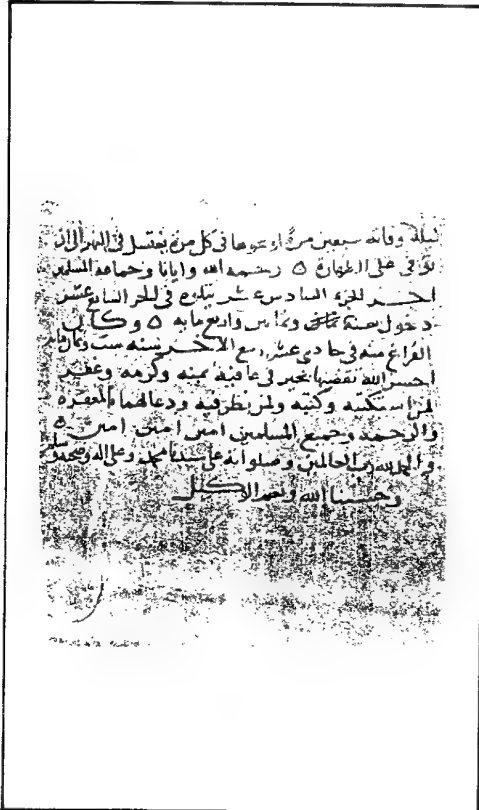 ليلة وفاته سبعين مرة او نحوها في كل مرة يغتسل في النهر الى ان
توفي على الطهارة ٥ رحمه الله وايانا وجماعة المسلمين
اخر الجزء السادس عشر يتلوه في السابع عشر
دخول سنة وثمانين واربع مايه ٥ وكان
الفراغ منه في حادي عشر ربيع الاخر سنه ست
احسن الله تقضيها بخير في عافية بمنه وكرمه وغفر
لمن استكتبه وكتبه ولمن نظر فيه ودعا لهما بالمغفرة
والرحمة وجميع المسلمين امين امين امين ٥
والحمد لله رب العالمين وصلواته على سيدنا محمد وعلى اله وصحبه وسلم
وحسبنا الله ونعم الوكيل